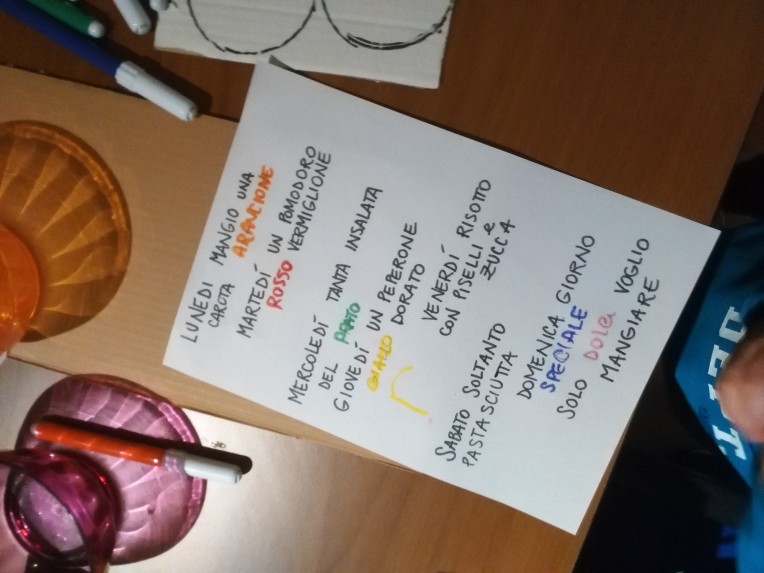 LUNEDI MANGIO UNA
CAROTA ARANCIONE
MARTEDÍ UN POMODORO
ROSSO VERMIGLIONE
MERCOLEDÍ TANTA INSALATA
DEL PRATO
GIOVEDÍ UN PEPERONE
GIALLO DORATO
VENERDÍ RISOTTO
CON PISELLI e
ZUCCA
SABATO SOLTANTO
PASTASCIUTTA
DOMENICA GIORNO
SPECIALE
SOLO DOLCI VOGLIO
MANGIARE